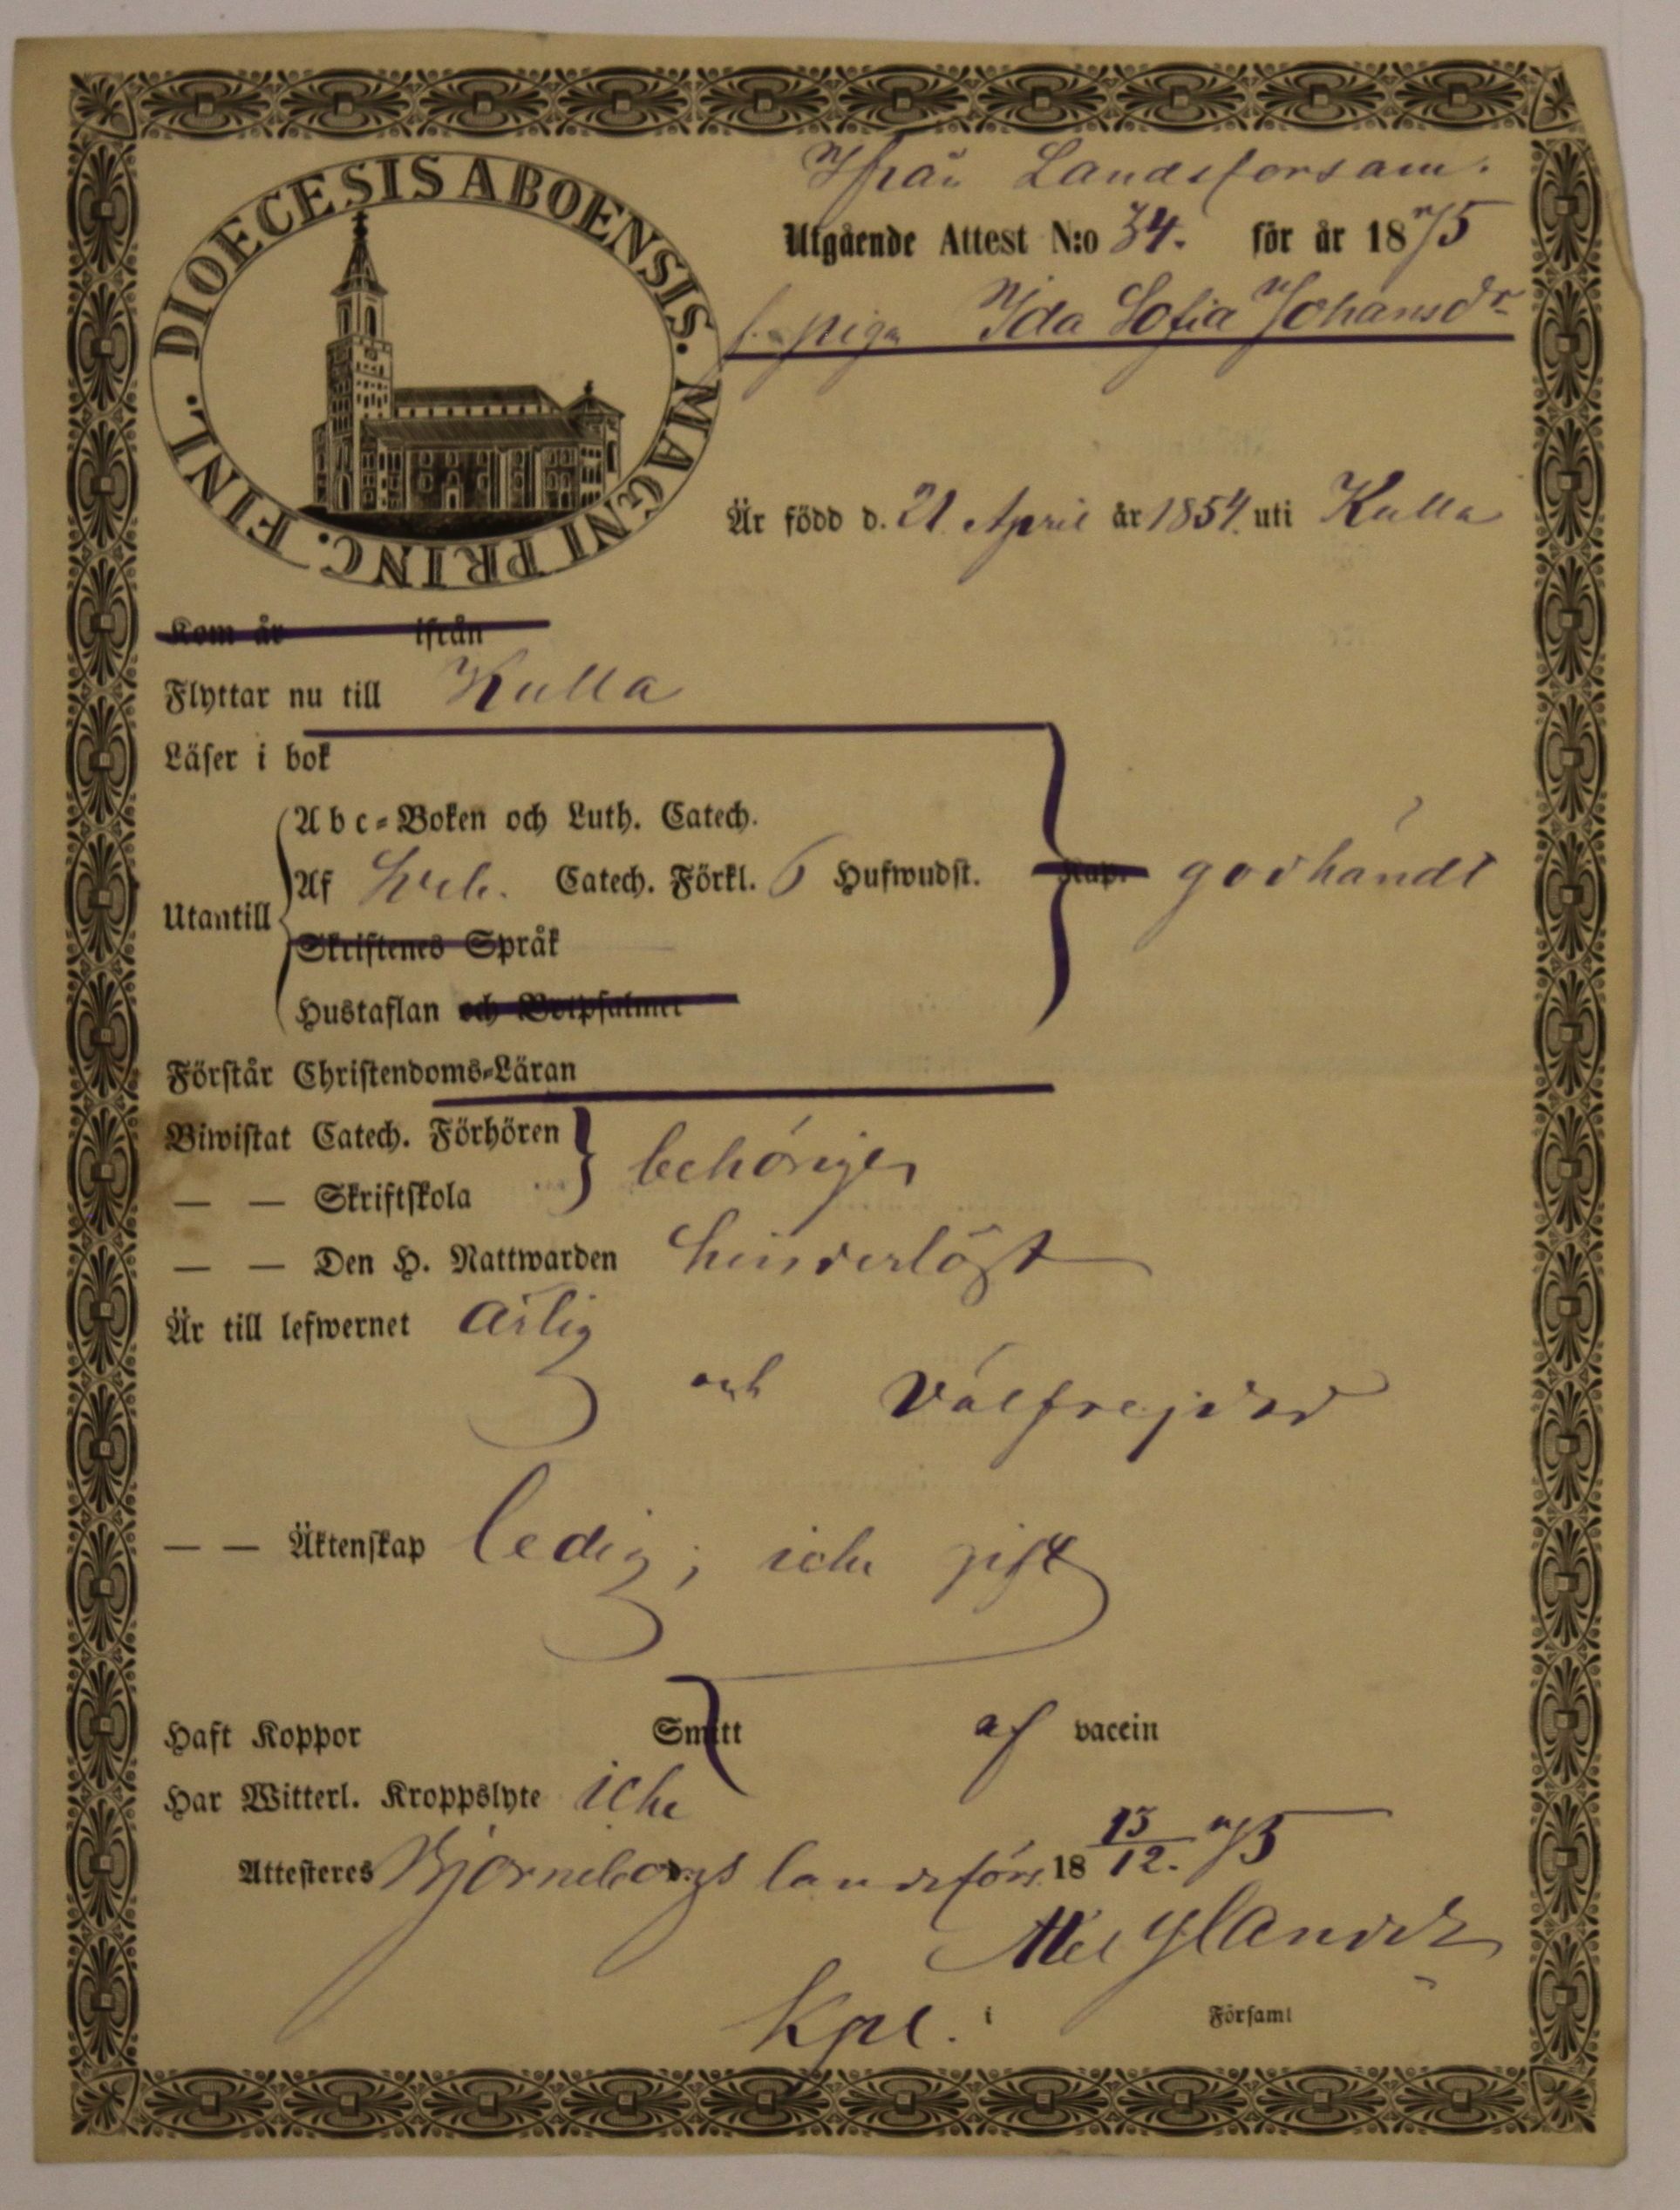 DIOECESIS ABOENSIS. MAGNI PRINC. FINL.
Ifrån Landsförsam.
Utgående Attest N:o 34. för år 1875
f. piga Ida Sofia Johansdr
Är född d. 21 April år 1854. uti Kulla
Kom år ifrån
Flyttar nu till Kulla
Läser i bok
Abc-Boken och Luth. Catech.
Af Sveb. Catech. Förkl. 6 Hufwudst. Kap. godkändt
Utantill
Skriftenes Språk
Hustaflan och Botpsalmer
Förstår Christendoms-Läran
Biwistat Catech. Förhören
behörigen
— — Skriftskola
— — Den H. Nattwarden hinderlöst
Är till lefwernet ärlig
och välfrejdad
— — Äktenskap ledig; icke gift
Haft Koppor Smitt af vaccin
Har Witterl. Kroppslyte icke
Attesteres Björneborgs landsförs. 18 13/12. 75
Kpl. i Församl